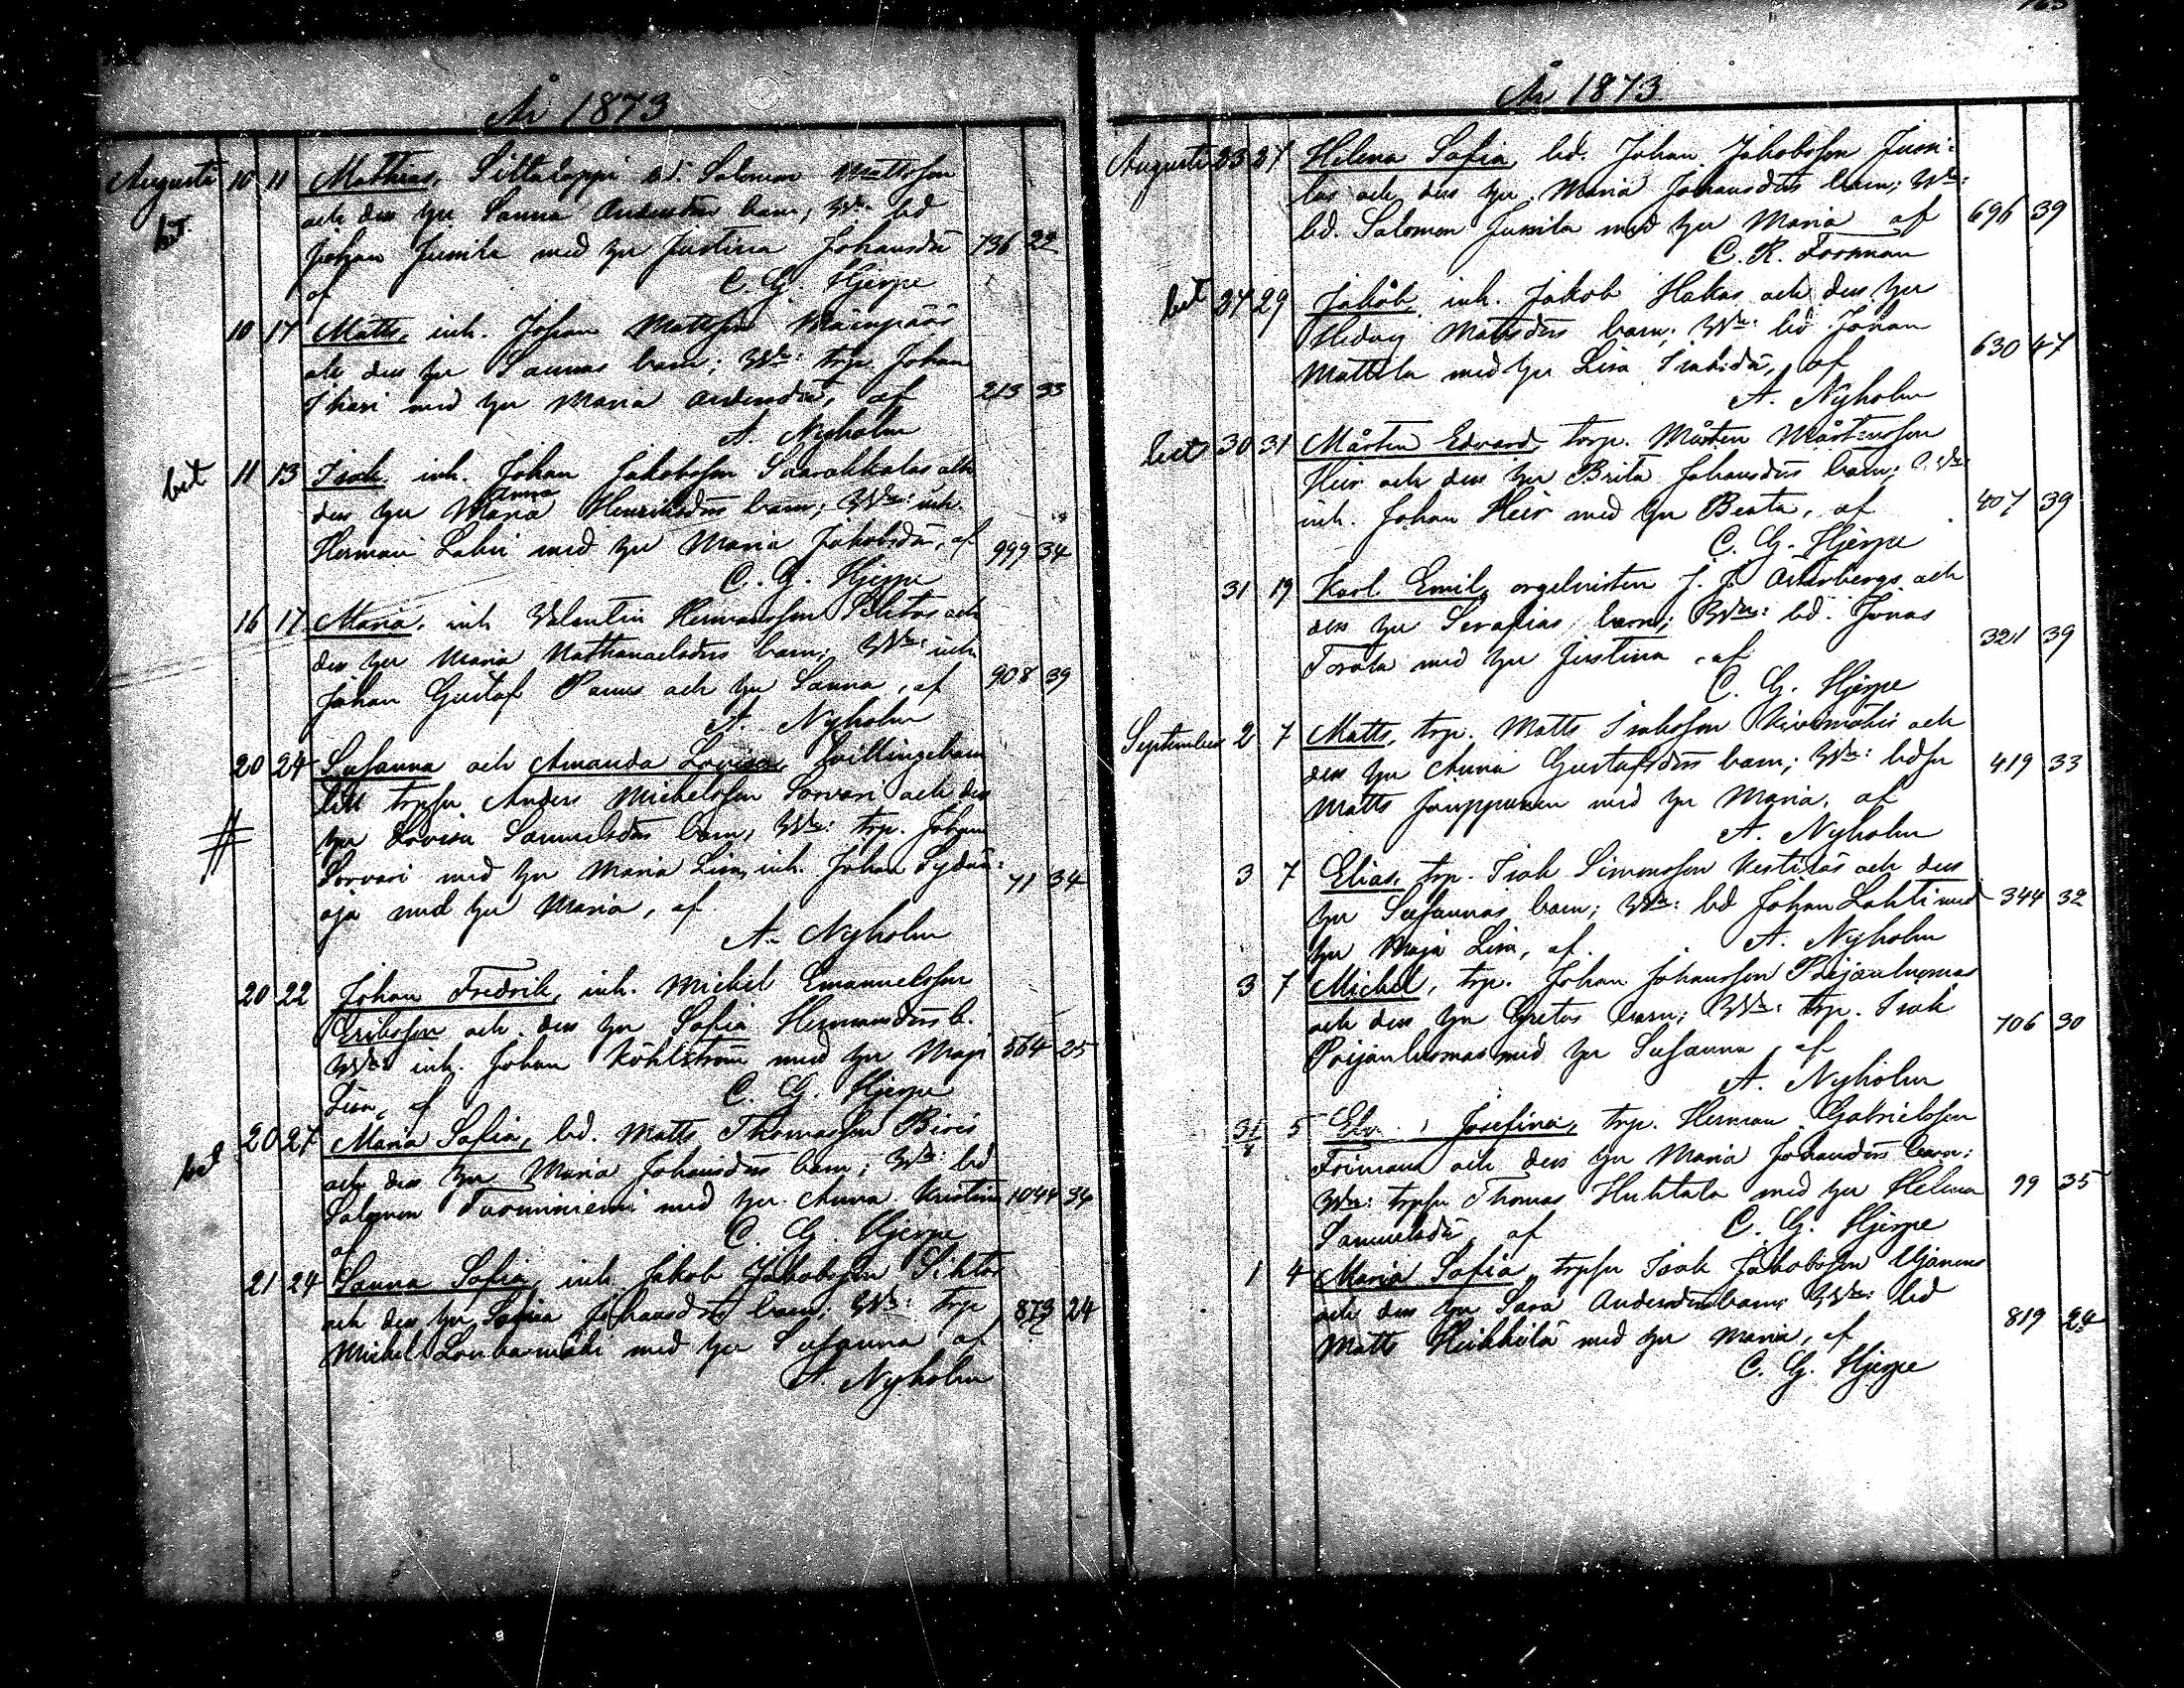 År 1873
Augusti 10 11 Mathias, Siltaloppi bd. Salomon Mattsson
och dess hu Sanna Andersdrs barn; Wne bd
bet
Johan Jumila med hu Justina Johansdr 736 22
af C. G. Hjerpe
10 17 Matts, inh. Johan Mattsson Mäenpääs
och dess hu Sannas barn; Wne: trp. Johan
Ikari med hu Maria Andersdr, af 213 33
A. Nyholm
bet 11 13 Isak inh. Johan Jakobsson Saarakkalas och
dess hu Maria Anna Henriksdrs barn; Wne: inh.
Herman Lahti med hu Maria Jakobsdr, af 999 34
C. G. Hjerpe
16 17 Maria, inh Valentin Hermansson och
dess hu Maria Nathanaelsdrs barn; Wne: inh
Johan Gustaf och hu Sanna, af 908 39
A. Nyholm
20 24 Susanna och Amanda Lovisa, tvillingebarn
till trpsn Anders Michelsson Sorvari och dess
hu Lovisa Samuelsdrs barn, Wne: trp. Johan
Sorvari med hu Maria Lisa, inh. Johan Sydän-
oja med hu Maria, af 71 34
A. Nyholm
20 22 Johan Fredrik, inh. Michel Emanuelsson
Eriksson och dess hu Sofia Hermansdrs b.
Wne inh. Johan Köhlström med hu Maja 564 25
Lisa, af C. G. Hjerpe
bet 20 27 Maria Sofia, bd. Matts Thomasson
och dess hu Maria Johansdrs barn; Wne: bd
Salomon Tuominiemi med hu Anna Kristina 1044 34
af C. G. Hjerpe
21 24 Sanna Sofia, inh Jakob Jakobsson
och dess hu Sofia Johansdrs barn; Wne: trp 873 24
Michel med hu Susanna af
A. Nyholm
År 1873
Augusti 23 27 Helena Sofia, bd. Johan Jakobsson Jussi-
las och dess hu Maria Johansdrs barn; Wne:
bd. Salomon Jussila med hu Maria af 696 39
C. R. Forsman
bet 27 29 Jakob, inh. Jakob Hakas och dess hu
Hedvig Mattsdrs barn; Wne: bd Johan
Mattila med hu Lisa Isaksdr, af 630 47
A. Nyholm
bet 30 31 Mårten Edvard, torp. Mårten Mårtensson
Heir och dess hu Brita Johansdrs barn; Wne
inh. Johan Heir med hu Beata, af 407 39
C. G. Hjerpe
31 19 Karl Emil, orgelnisten J. J. och
dess hu Serafias barn; Wne: bd. Jonas
Torala med hu Justina af 321 39
C. G. Hjerpe
September 2 7 Matts, trp. Matts Isaksson Kivimäkis och
dess hu Anna Gustafsdrs barn; Wne: bdsn
Matts Jauppunen med hu Maria, af 419 33
A. Nyholm
3 7 Elias, trp. Isak Simonsson och dess
hu Susannas barn; Wne: bd Johan Lahti med 344 32
hu Maja Lisa, af. A. Nyholm
3 7 Michel, trp. Johan Johansson Poijanluomas
och dess hu Gretas barn; Wne: trp. Isak
Poijanluomas med hu Susanna, af 706 30
A. Nyholm
31/8 5 Josefina, trp. Herman Gabrielsson
och dess hu Maria Johansdrs barn:
Wne: trpsn Thomas Huhtala med hu Helena 99 35
Samuelsdr, af C. G. Hjerpe
1 4 Maria Sofia, trpsn Isak Jakobsson
och dess hu Sara Andersdrs barn; Wne: bd
Matts Heikkilä med hu Maria, af 819 24
C. G. Hjerpe